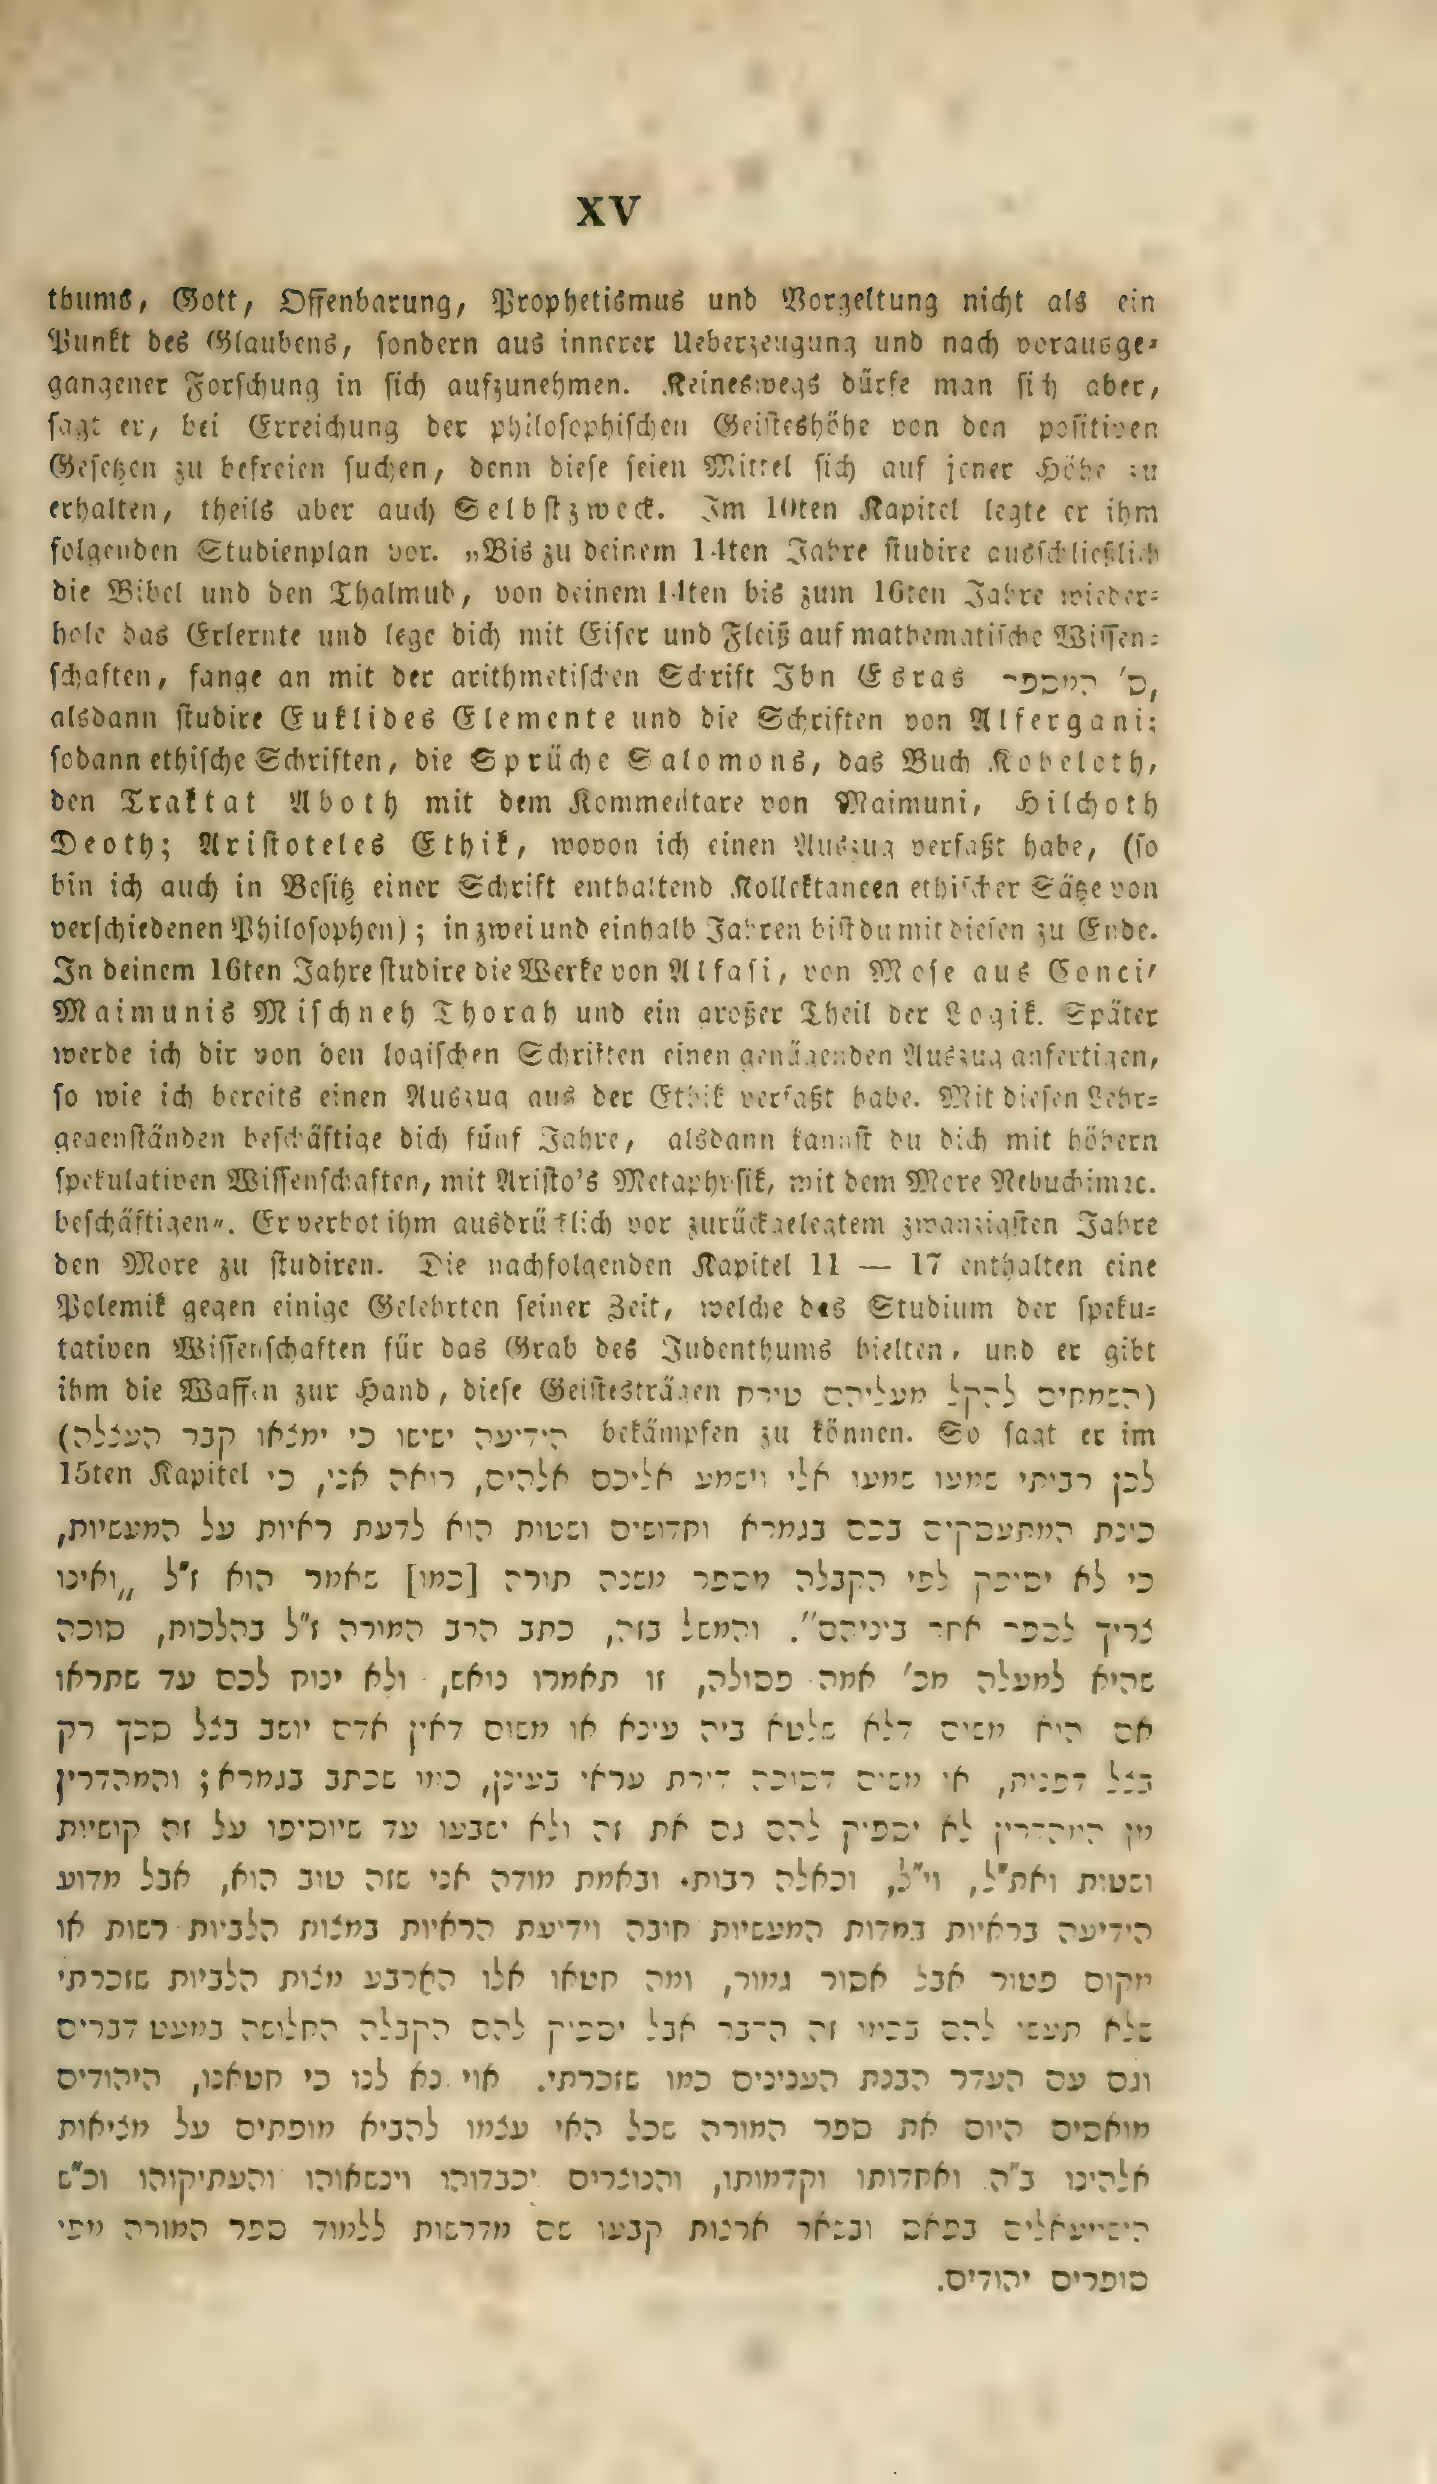 XV
thums, Gott, Offenbarung, Prophetismus und Vorgeltung nicht als ein
Punkt des Glaubens, sondern aus innerer Ueberzeugung und nach vorausge-
gangener Forschung in sich aufzunehmen. Keineswegs dürfe man sich aber,
sagt er, bei Erreichung der philosophischen Geisteshöhe von den positiven
Gesetzen zu befreien suchen, denn diese seien Mittel sich auf jener Höhe zu
erhalten, theils aber auch Selbstzweck. Im 10ten Kapitel legte er ihm
folgenden Studienplan vor. „Bis zu deinem 14ten Jahre studire ausschließlich
die Bibel und den Thalmud, von deinem 14ten bis zum 16ten Jahre wieder-
hole das Erlernte und lege dich mit Eifer und Fleiß auf mathematische Wissen-
schaften, fange an mit der arithmetischen Schrift Ibn Esras ס' המספר,
alsdann studire Euklides Elemente und die Schriften von Alfergani;
sodann ethische Schriften, die Sprüche Salomons, das Buch Koheleth,
den Traktat Aboth mit dem Kommentare von Maimuni, Hilchoth
Deoth; Aristoteles Ethik, wovon ich einen Auszug verfaßt habe, (so
bin ich auch in Besitz einer Schrift enthaltend Kollektaneen ethischer Säße von
verschiedenen Philosophen); in zwei und einhalb Jahren bist du mit diesen zu Ende.
In deinem 16ten Jahre studire die Werke von Alfasi, von Mose aus Conci,
Maimunis Mischneh Thorah und ein großer Theil der Logik. Später
werde ich dir von den logischen Schriften einen genügenden Auszug anfertigen,
so wie ich bereits einen Auszug aus der Ethik verfaßt habe. Mit diesen Lehr-
gegenständen beschäftige dich fünf Jahre, alsdann kannst du dich mit höhern
spekulativen Wissenschaften, mit Aristo's Metaphysik, mit dem More Nebuchim ꝛc.
beschäftigen“. Er verbot ihm ausdrücklich vor zurückgelegtem zwanzigsten Jahre
den More zu studiren. Die nachfolgenden Kapitel 11 — 17 enthalten eine
Polemik gegen einige Gelehrten seiner Zeit, welche das Studium der speku-
tativen Wissenschaften für das Grab des Judenthums hielten, und er gibt
ihm die Waffen zur Hand, diese Geistesträgen (השמחים להקל מעליהם טירח
הידיעה ישישו כי ימצאו קבר העצלה) bekämpfen zu können. So sagt er im
15ten Kapitel לכן רביתי שמעו שמעו אלי וישמע אליכם אלהים, רואה אני, כי
כינת המתעסקים בכם בגמרא וחדושים ושטות הוא לדעת ראיות על המעשיות,
כי לא יספיק לפי הקבלה מספר משנה תורה [כמו] שאמר הוא ז"ל „ואינו
צריך לספר אחר ביניהם". והמשל בזה, כתב הרב המורה ז"ל בהלכות, סוכה
שהיא למעלה מכ' אמה פסולה, זו תאמרו נואש, ולא ינוח לכם עד שתראו
אם היא משים דלא שלטא ביה עינא או משום דאין אדם יושב בצל סכך רק
בצל דפנית, אי משים דסוכה דירת עראי בעינן, כמו שכתב בגמרא; והמהדרין
מן המהדרין לא יספיק להם גם את זה ולא ישבעו עד שיוסיפו על זה קושיות
ושטות ואת"ל, וי"ל, וכאלה רבות. ובאמת מודה אני שזה טוב הוא, אבל מדוע
הידיעה בראיות במדות המעשיות חובה וידיעת הראיות במצות הלביות רשות או
מקום פטור אבל אסור גמור, ומה חטאו אלו הארבע מצות הלביות שזכרתי
שלא תעשי להם בכמו זה הדבר אבל יספיק להם הקבלה החלושה במעט דברים
וגם עם העדר הבנת הענינים כמו שזכרתי. אוי נא לנו כי חטאנו, היהודים
מואסים היום את ספר המורה שכל האי עצמו להביא מופתים על מציאות
אלהינו ב"ה ואחדותו וקדמותו, והנוצרים יכבדוהו וינשאוהו והעתיקוהו וכ"ש
הישמעאלים בפאס ובשאר ארצות קבעו שם מדרשות ללמוד ספר המורה מפי
סופרים יהודים.